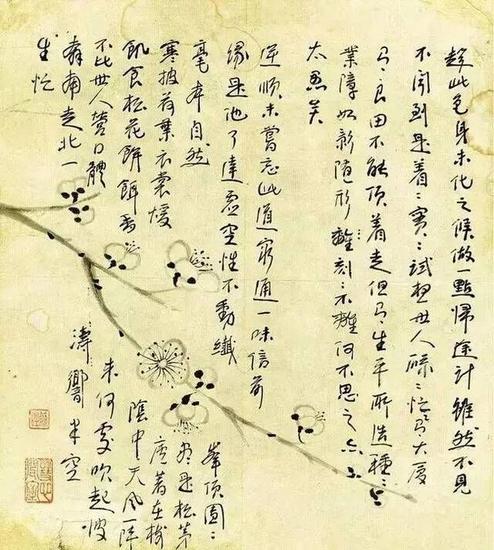 趂此色身未化之候做一點歸途計雖然不見
不聞到是着々實々試想世人碌々忙為大厦
為良田不能頂着走但為生平所造種々
業障如影隨形離刻々不離何不思之亦
太愚矣
逆順未嘗忘此道窮通一味信前
緣是他了達虛空性不動纖
毫本自然
寒披荷葉衣裳煖
飢食松花餅餌香
不比世人營口體
奔南走北一
生忙
峯頂團々
盡是松茅
廬著在樹
陰中天風一陣
來何處吹起波
濤響半空